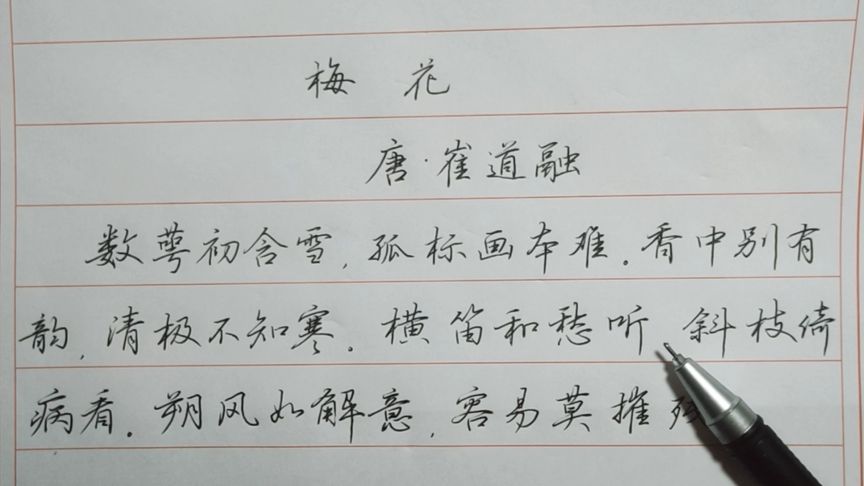 梅花
唐·崔道融
数萼初含雪,孤标画本难。香中别有
韵,清极不知寒。横笛和愁听 斜枝倚
病看。朔风如解意,容易莫摧残